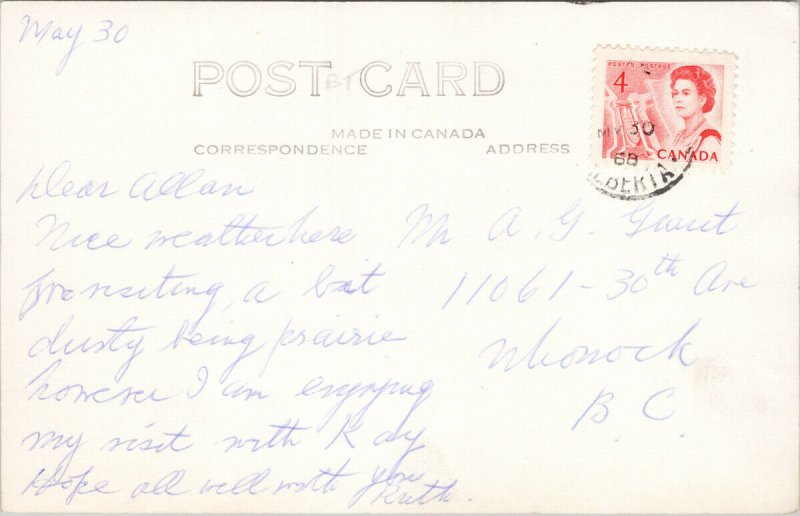 May 30
POST CARD
MADE IN CANADA
CORRESPONDENCE ADDRESS
POSTES POSTAGE
4
CANADA
MY 30
68
ALBERTA
Dear Allan
Nice weather here
for visiting, a bit
dusty being prairie
however I am enjoying
my visit with Kay
Hope all well with you
Ruth.
Mr A. G. Grant
11061-30th Ave
Whonock
B.C.